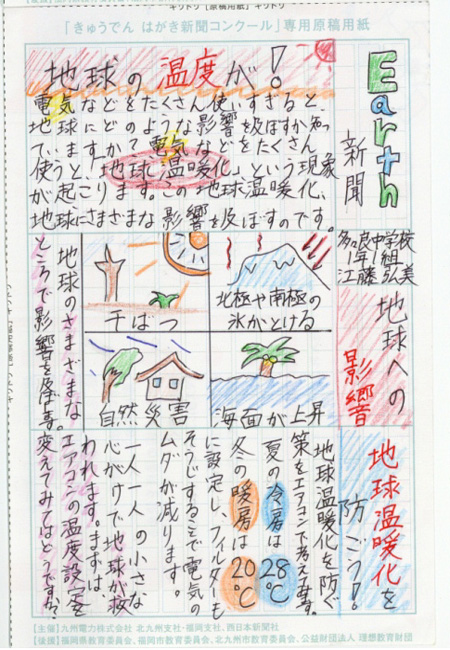 キリトリ【原稿用紙】キリトリ
「きゅうでん はがき新聞コンクール」専用原稿用紙
Earth
新聞
多良中学校
1年1組
江藤弘美
地球の温度が!
電気などをたくさん使いすぎると、
地球にどのような影響を及ぼすか知っ
ていますか?電気などをたくさん
使うと「地球温暖化」という現象
が起こります。この地球温暖化、
地球にさまざまな影響を及ぼすのです。
地球への
影響
北極や南極の
氷がとける
干ばつ
海面が上昇
自然災害
地球のさまざまな
ところで影響を及ぼす。
地球温暖化を
防ごう!
地球温暖化を防ぐ
策をエアコンで考えてみます。
夏の冷房は28℃
冬の暖房は20℃
に設定し、フィルターも
そうじすることで電気の
ムダが減ります。
一人一人の小さな
心がけで地球が救
われます。まずは、
エアコンの温度設定を
変えてみてはどうですか?
【主催】九州電力株式会社 北九州支社・福岡支社、西日本新聞社
【後援】福岡県教育委員会、福岡市教育委員会、北九州市教育委員会、公益財団法人 理想教育財団